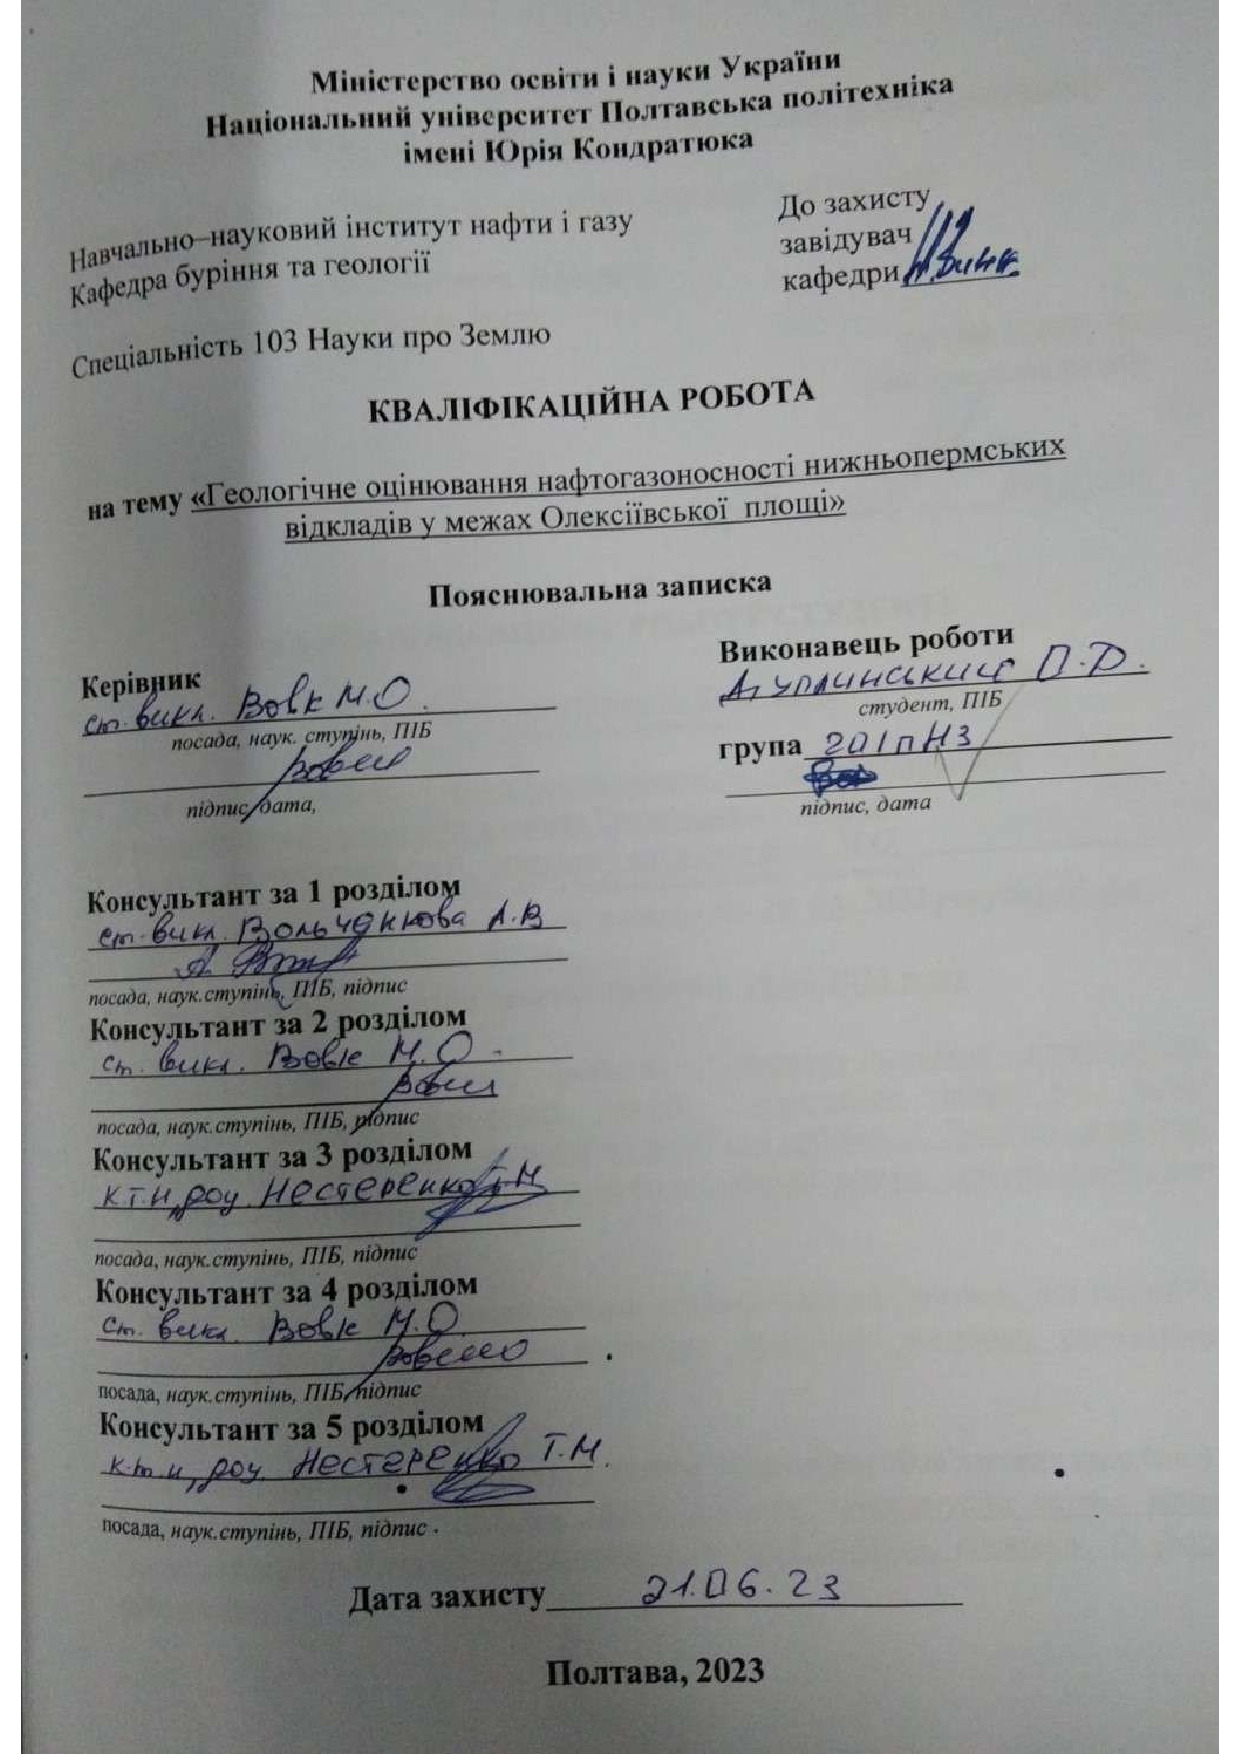 Міністерство освіти і науки України
Національний університет Полтавська політехніка
імені Юрія Кондратюка
Навчально–науковий інститут нафти і газу
Кафедра буріння та геології
До захисту
завідувач
кафедри
Спеціальність 103 Науки про Землю
КВАЛІФІКАЦІЙНА РОБОТА
на тему «Геологічне оцінювання нафтогазоносності нижньопермських
відкладів у межах Олексіївської площі»
Пояснювальна записка
Керівник
ст. викл. Вовк М.О.
посада, наук. ступінь, ПІБ
підпис, дата,
Виконавець роботи
П.Д.
студент, ПІБ
група 201пНЗ
підпис, дата
Консультант за 1 розділом
ст. викл. Вольченкова А.В
посада, наук.ступінь, ПІБ, підпис
Консультант за 2 розділом
ст. викл. Вовк М.О.
посада, наук.ступінь, ПІБ, підпис
Консультант за 3 розділом
к.т.н., доц. Нестеренко Т.М
посада, наук.ступінь, ПІБ, підпис
Консультант за 4 розділом
ст. викл. Вовк М.О.
посада, наук.ступінь, ПІБ, підпис
Консультант за 5 розділом
к.т.н, доц. Нестеренко Т.М.
посада, наук.ступінь, ПІБ, підпис
Дата захисту 21.06.23
Полтава, 2023